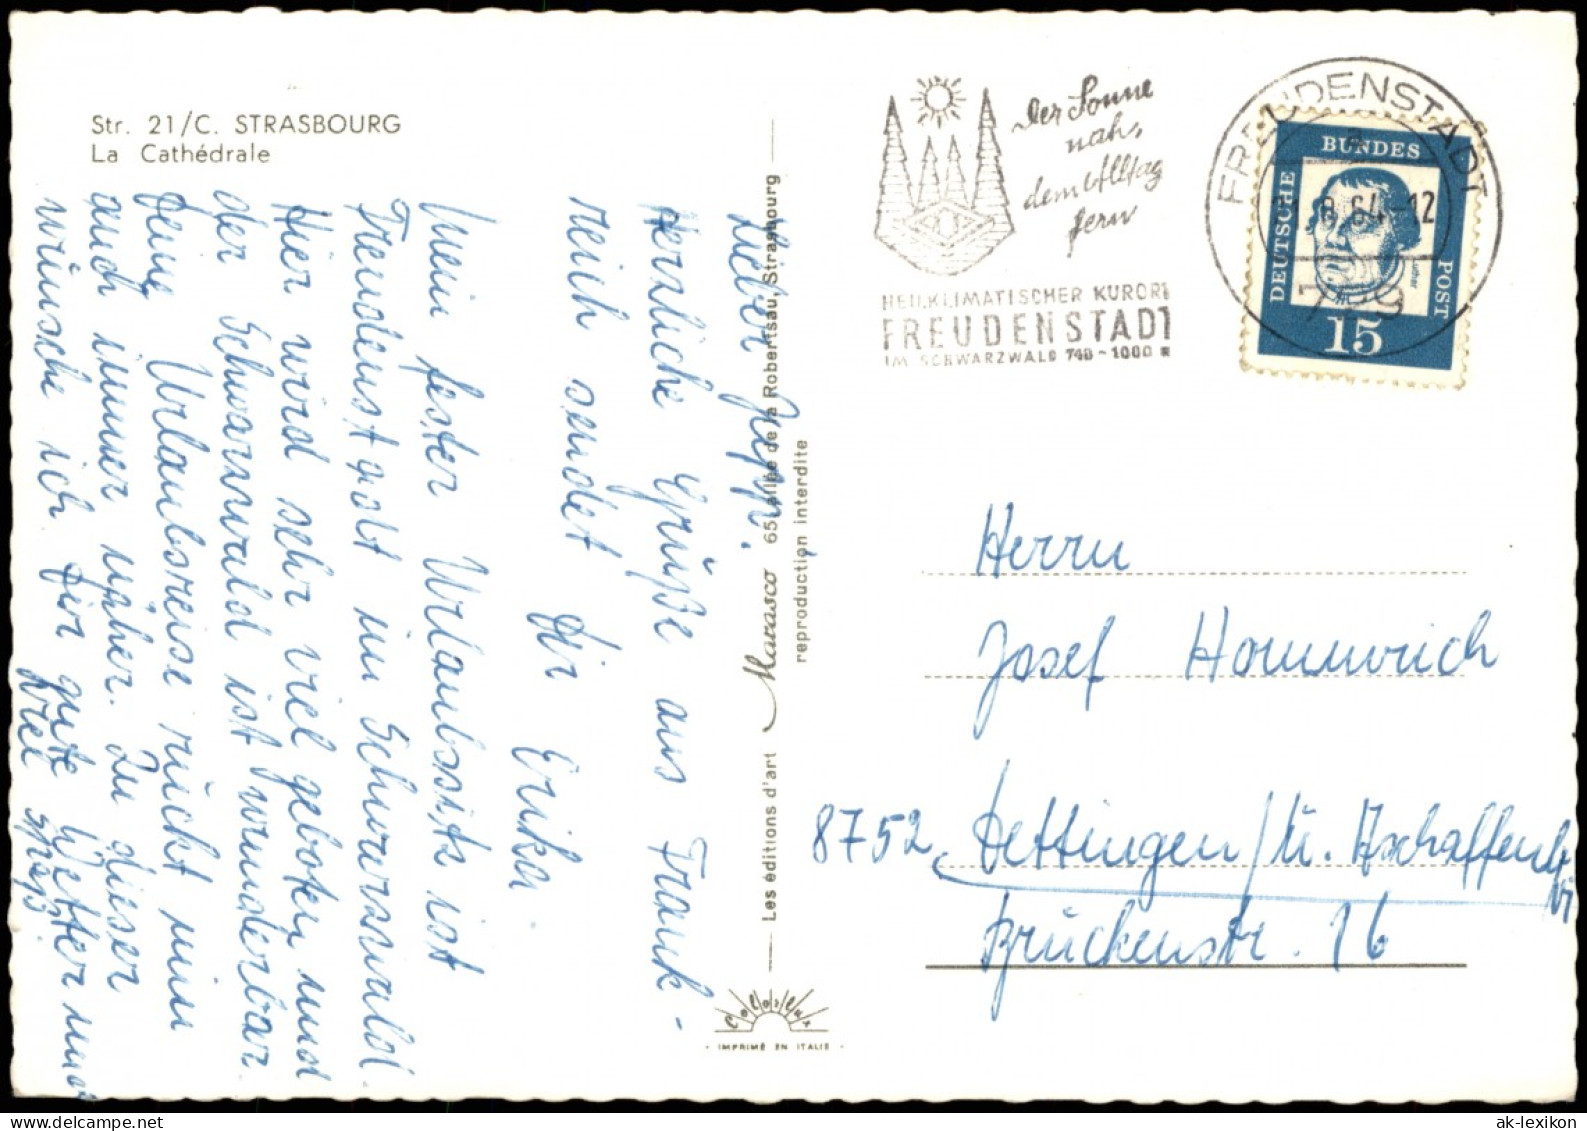 Str. 21/C. STRASBOURG
La Cathédrale
Lieber Jupp.
Herzliche Grüße aus Frank-
reich sendet Dir Erika
Mein fester Urlaubssitz ist
Freudenstadt im Schwarzwald.
Hier wird sehr viel geboten und
der Schwarzwald ist wunderbar.
Deine Urlaubsreise rückt nun
auch immer näher. Zu dieser
wünsche ich Dir gute Wetter und
viel Spaß.
Les éditions d'art Marasco 65, allée de la Robertsau, Strasbourg
reproduction interdite
Colorlux
IMPRIMÉ EN ITALIE
der Sonne
nah,
dem Alltag
fern
HEILKLIMATISCHER KURORT
FREUDENSTADT
IM SCHWARZWALD 740-1000 m
FREUDENSTADT
a
8.64.12
729
DEUTSCHE
BUNDES
POST
Luther
15
Herrn
Josef Hommrich
8752 Dettingen/ü. Aschaffenb
Brückenstr. 16
ak-lexikon.com